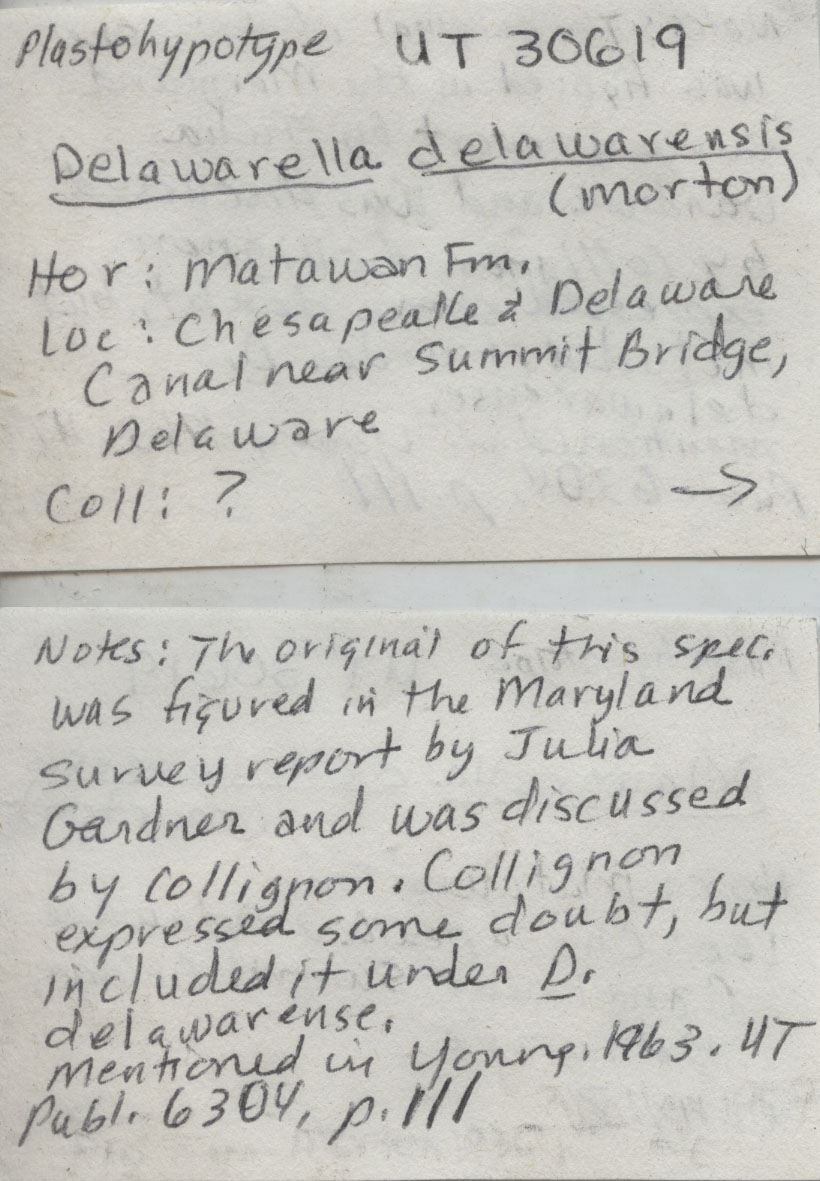 Plastohypotype UT 30619
Delawarella delawarensis
(morton)
Hor: Matawan Fm.
Loc: Chesapeake & Delaware
Canal near Summit Bridge,
Delaware
Coll: ?
→
Notes: The original of this spec.
was figured in the Maryland
survey report by Julia
Gardner and was discussed
by Collignon. Collignon
expressed some doubt, but
included it under D.
delawarense.
Mentioned in Young. 1963. UT
Publ. 6304, p. 111